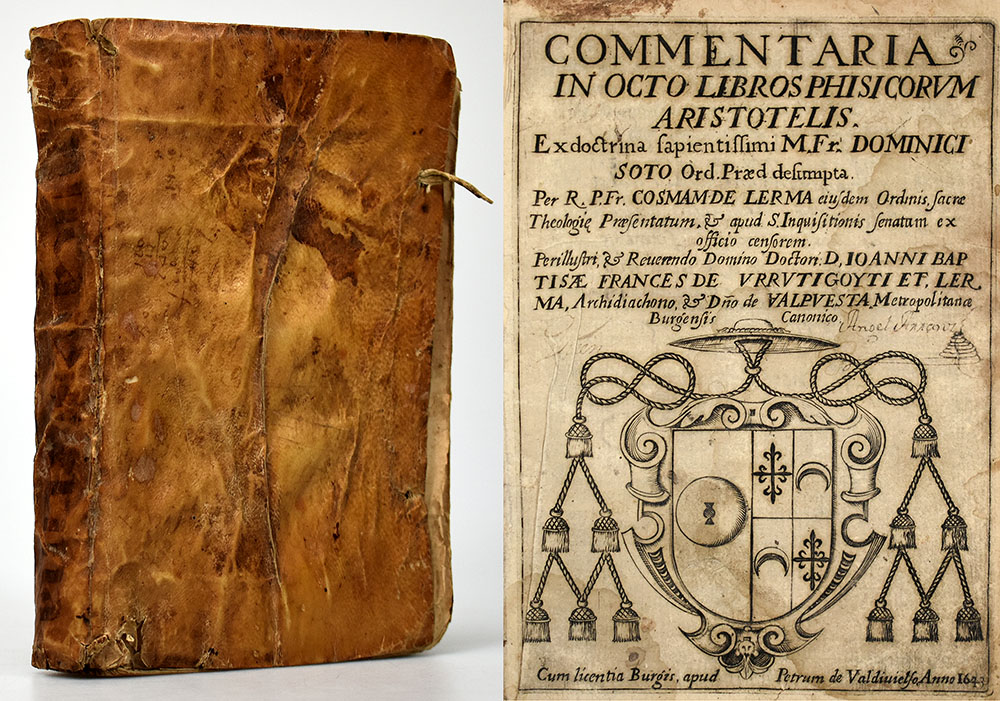 COMMENTARIA
IN OCTO LIBROS PHISICORVM
ARISTOTELIS.
Ex doctrina sapientissimi M. Fr. DOMINICI
SOTO Ord. Præd desumpta.
Per R. P. Fr. COSMAM DE LERMA eiusdem Ordinis, sacræ
Theologię Præsentatum, & apud S. Inquisitionis senatum ex
officio censorem.
Perillustri, & Reverendo Domino Doctori, D, IOANNI BAP
TISÆ FRANCES DE VRRVTIGOYTI ET, LER
MA, Archidiachono, & Dño de VALPVESTA, Metropolitanæ
Burgensis Canonico
Angel
Cum licentia Burgis, apud Petrum de Valdivielso, Anno